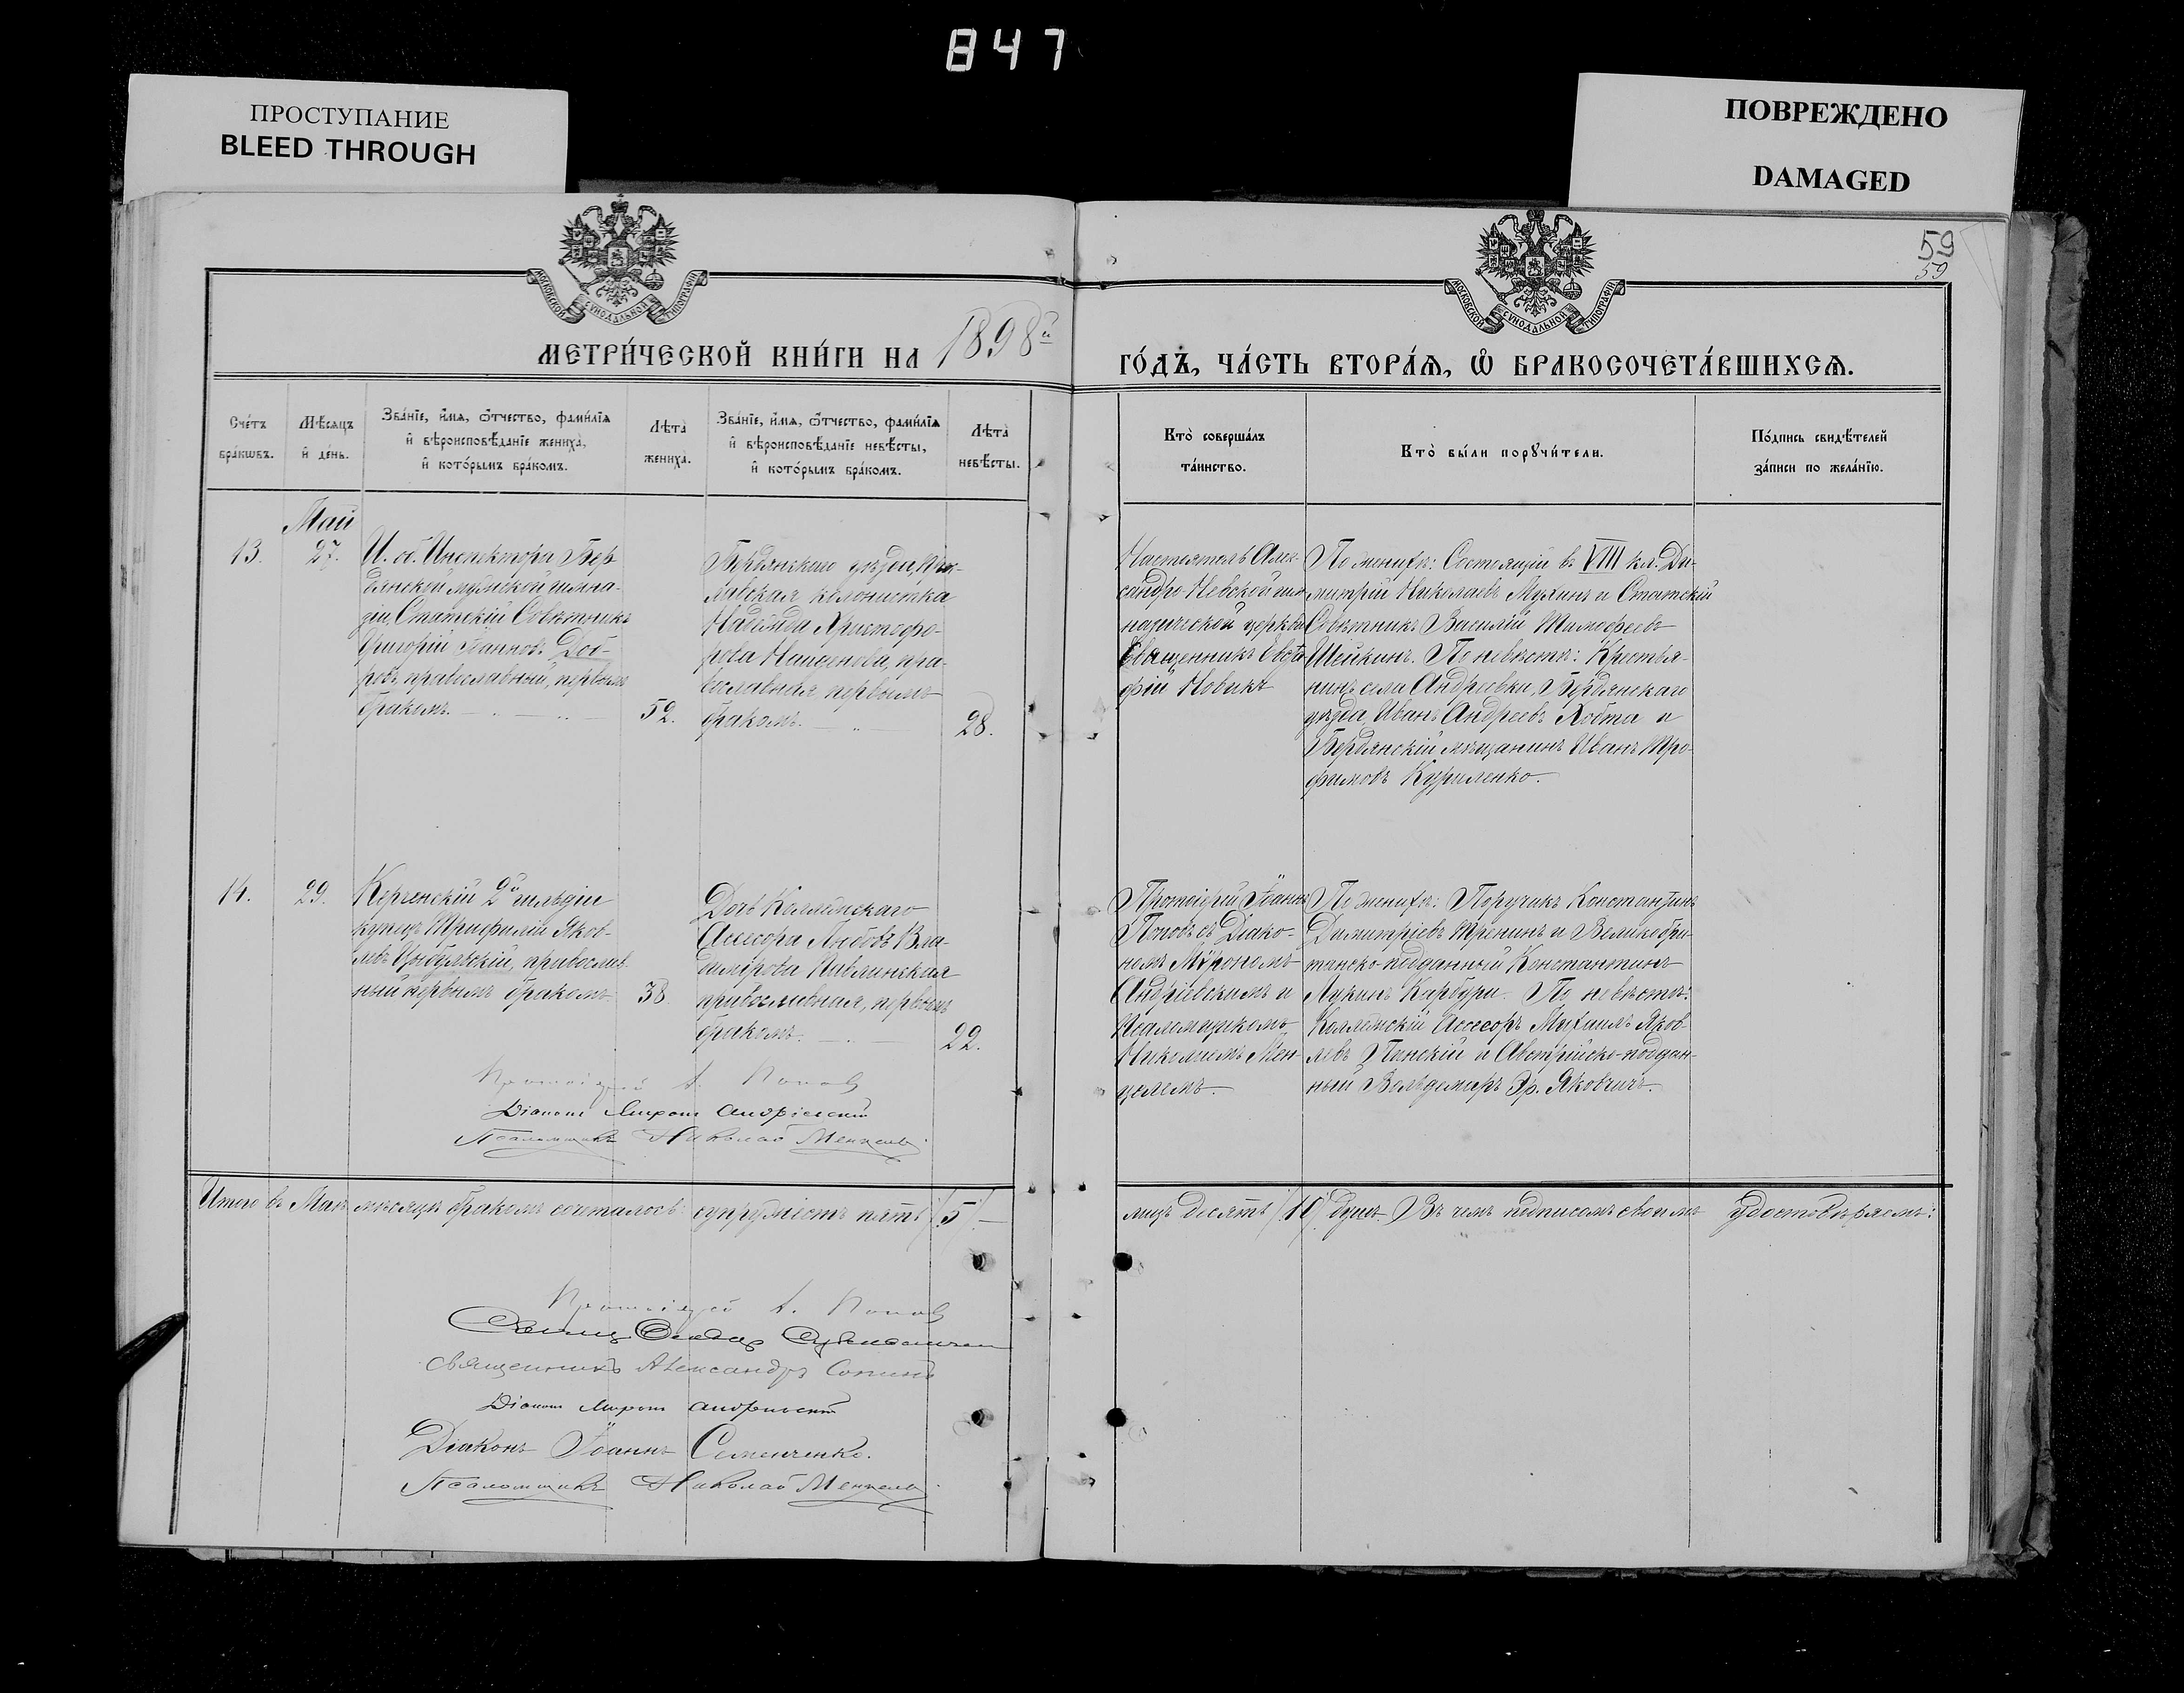 847
ПРОСТУПАНИЕ
BLEED THROUGH
ПОВРЕЖДЕНО
DAMAGED
59
59
МОСКОВСКОЙ СУНОДАЛЬНОЙ ТИПОГРАФІИ
МОСКОВСКОЙ СУНОДАЛЬНОЙ ТИПОГРАФІИ
МЕТРИ́ЧЕСКОЙ КНИ́ГИ НА 1898й
ГО́ДЪ, ЧА́СТЬ ВТОРА́Ѧ, Ѽ БРАКОСОЧЕТА́ВШИХСѦ.
Сче́тъ
бра́кѡвъ.
Мѣ́сяцъ
и҆ де́нь.
Зва́нїе, и҆́мѧ, ѻ҆́тчество, фами́лїѧ
и҆ вѣроисповѣ́данїе жениха̀,
и҆ кото́рымъ бра́комъ.
Лѣта̀
жениха̀.
Зва́нїе, и҆́мѧ, ѻ҆́тчество, фами́лїѧ
и҆ вѣроисповѣ́данїе невѣ́сты,
и҆ кото́рымъ бра́комъ.
Лѣта̀
невѣ́сты.
Кто̀ соверша́лъ
та́инство.
Кто̀ бы́ли порꙋчи́тели.
По́дпись свидѣ́телей
за́писи по жела́нїю.
Май
13.
27.
И. об. Инспектора Бер-
дянской мужской гимна-
зіи, Статскій Совѣтникъ
Григорій Іаннов. Доб-
ровъ, православный, первымъ
бракомъ.
52.
Бердянскаго уѣзда,
колонистка
Надежда Христофо-
рова пра-
вославная, первымъ
бракомъ.
28.
Настоятель Алек-
сандро-Невской гим-
назической церкви
Священникъ Евста-
фій Новикъ
По женихѣ: Состоящій въ VIII кл. Ди-
митрій Николаевъ Мухинъ и Статскій
Совѣтникъ Василій Тимофеевъ
Шейкинъ. По невѣстѣ: Крестья-
нинъ села Андреевки, Бердянскаго
уѣзда Иванъ Андреевъ Койта и
Бердянскій мѣщанинъ Иванъ Тро-
фимовъ Куриленко.
14.
29.
Керченскій 2й гильдіи
купецъ Трифилій Яков-
левъ Цыбульскій, православ-
ный первымъ бракомъ
38.
Дочь Коллежскаго
Ассесора Любовь Вла-
димірова Павлинская
православная, первымъ
бракомъ.
22.
Протоіерей Іоаннъ
Поповъ съ Діако-
номъ Мѵрономъ
Андріевскимъ и
Псаломщикомъ
Николаемъ Мен-
целемъ.
По женихѣ: Поручикъ Константинъ
Димитріевъ Тренинъ и Великобри-
танско-подданный Константинъ
Лукинъ Карбури. По невѣстѣ:
Коллежскій Ассесоръ Михаилъ Яков-
левъ Панскій и Австрійско-поддан-
ный Вольдемаръ Эр. Яковчичъ.
Протоіерей І. Попов
Діаконъ Миронъ Андріевскій
Псаломщикъ Николай Менцель
Итого въ Маѣ мѣсяцѣ бракомъ сочталось супружествъ пять /5/
лицъ десять /10/ душъ. Въ чемъ подписомъ своимъ удостовѣряемъ:
Протоіерей І. Попов
Священникъ Александръ Сопинъ
Діаконъ Миронъ Андріевскій
Діаконъ Іоаннъ Семенченко.
Псаломщикъ Николай Менцель